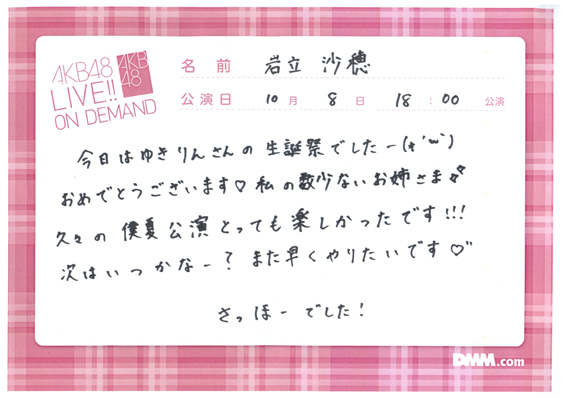 AKB48
LIVE!!
ON DEMAND
AKB
48
名前 岩立 沙穂
公演日 10月 8日 18:00 公演
今日はゆきりんさんの生誕祭でしたー(*'ω'`)
おめでとうございます♡私の数少ないお姉さま
久々の僕夏公演とっても楽しかったです!!!
次はいつかなー?また早くやりたいです♡
さっほーでした!
DMM.com